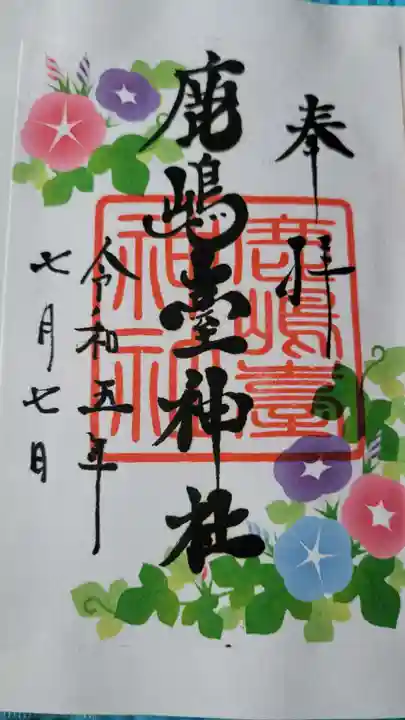 奉拝
鹿嶋臺神社
鹿嶋臺神社
令和五年
七月七日